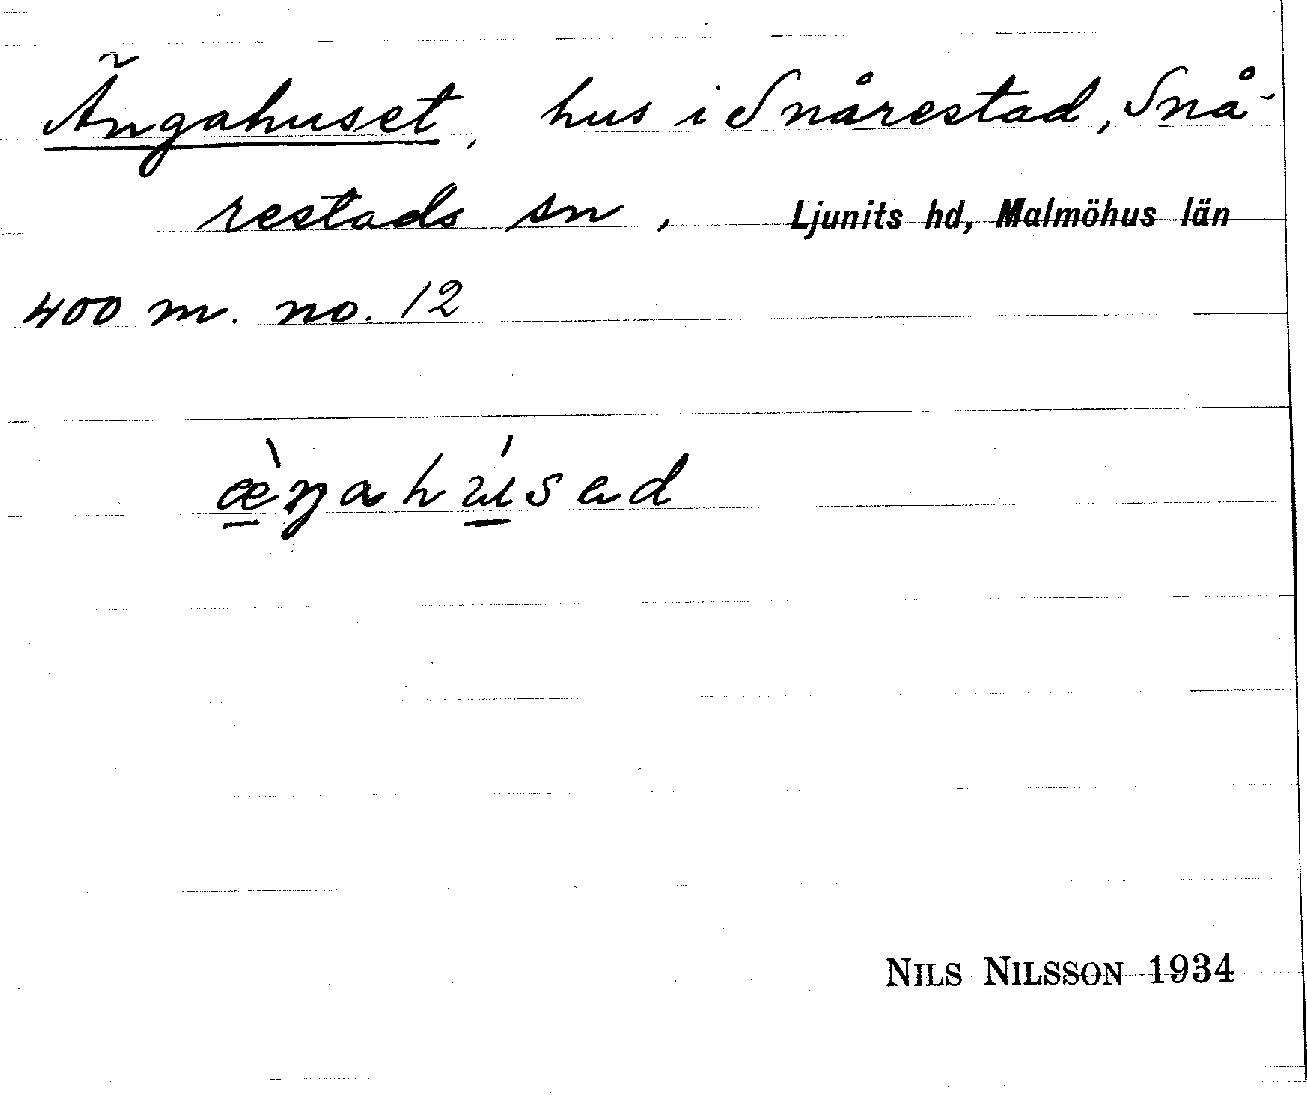 Ängahuset, hus i Snårestad, Snå-
restads sn, Ljunits hd, Malmöhus län
400 m. no. 12
æ̠̀ŋahú̠sad
NILS NILSSON 1934